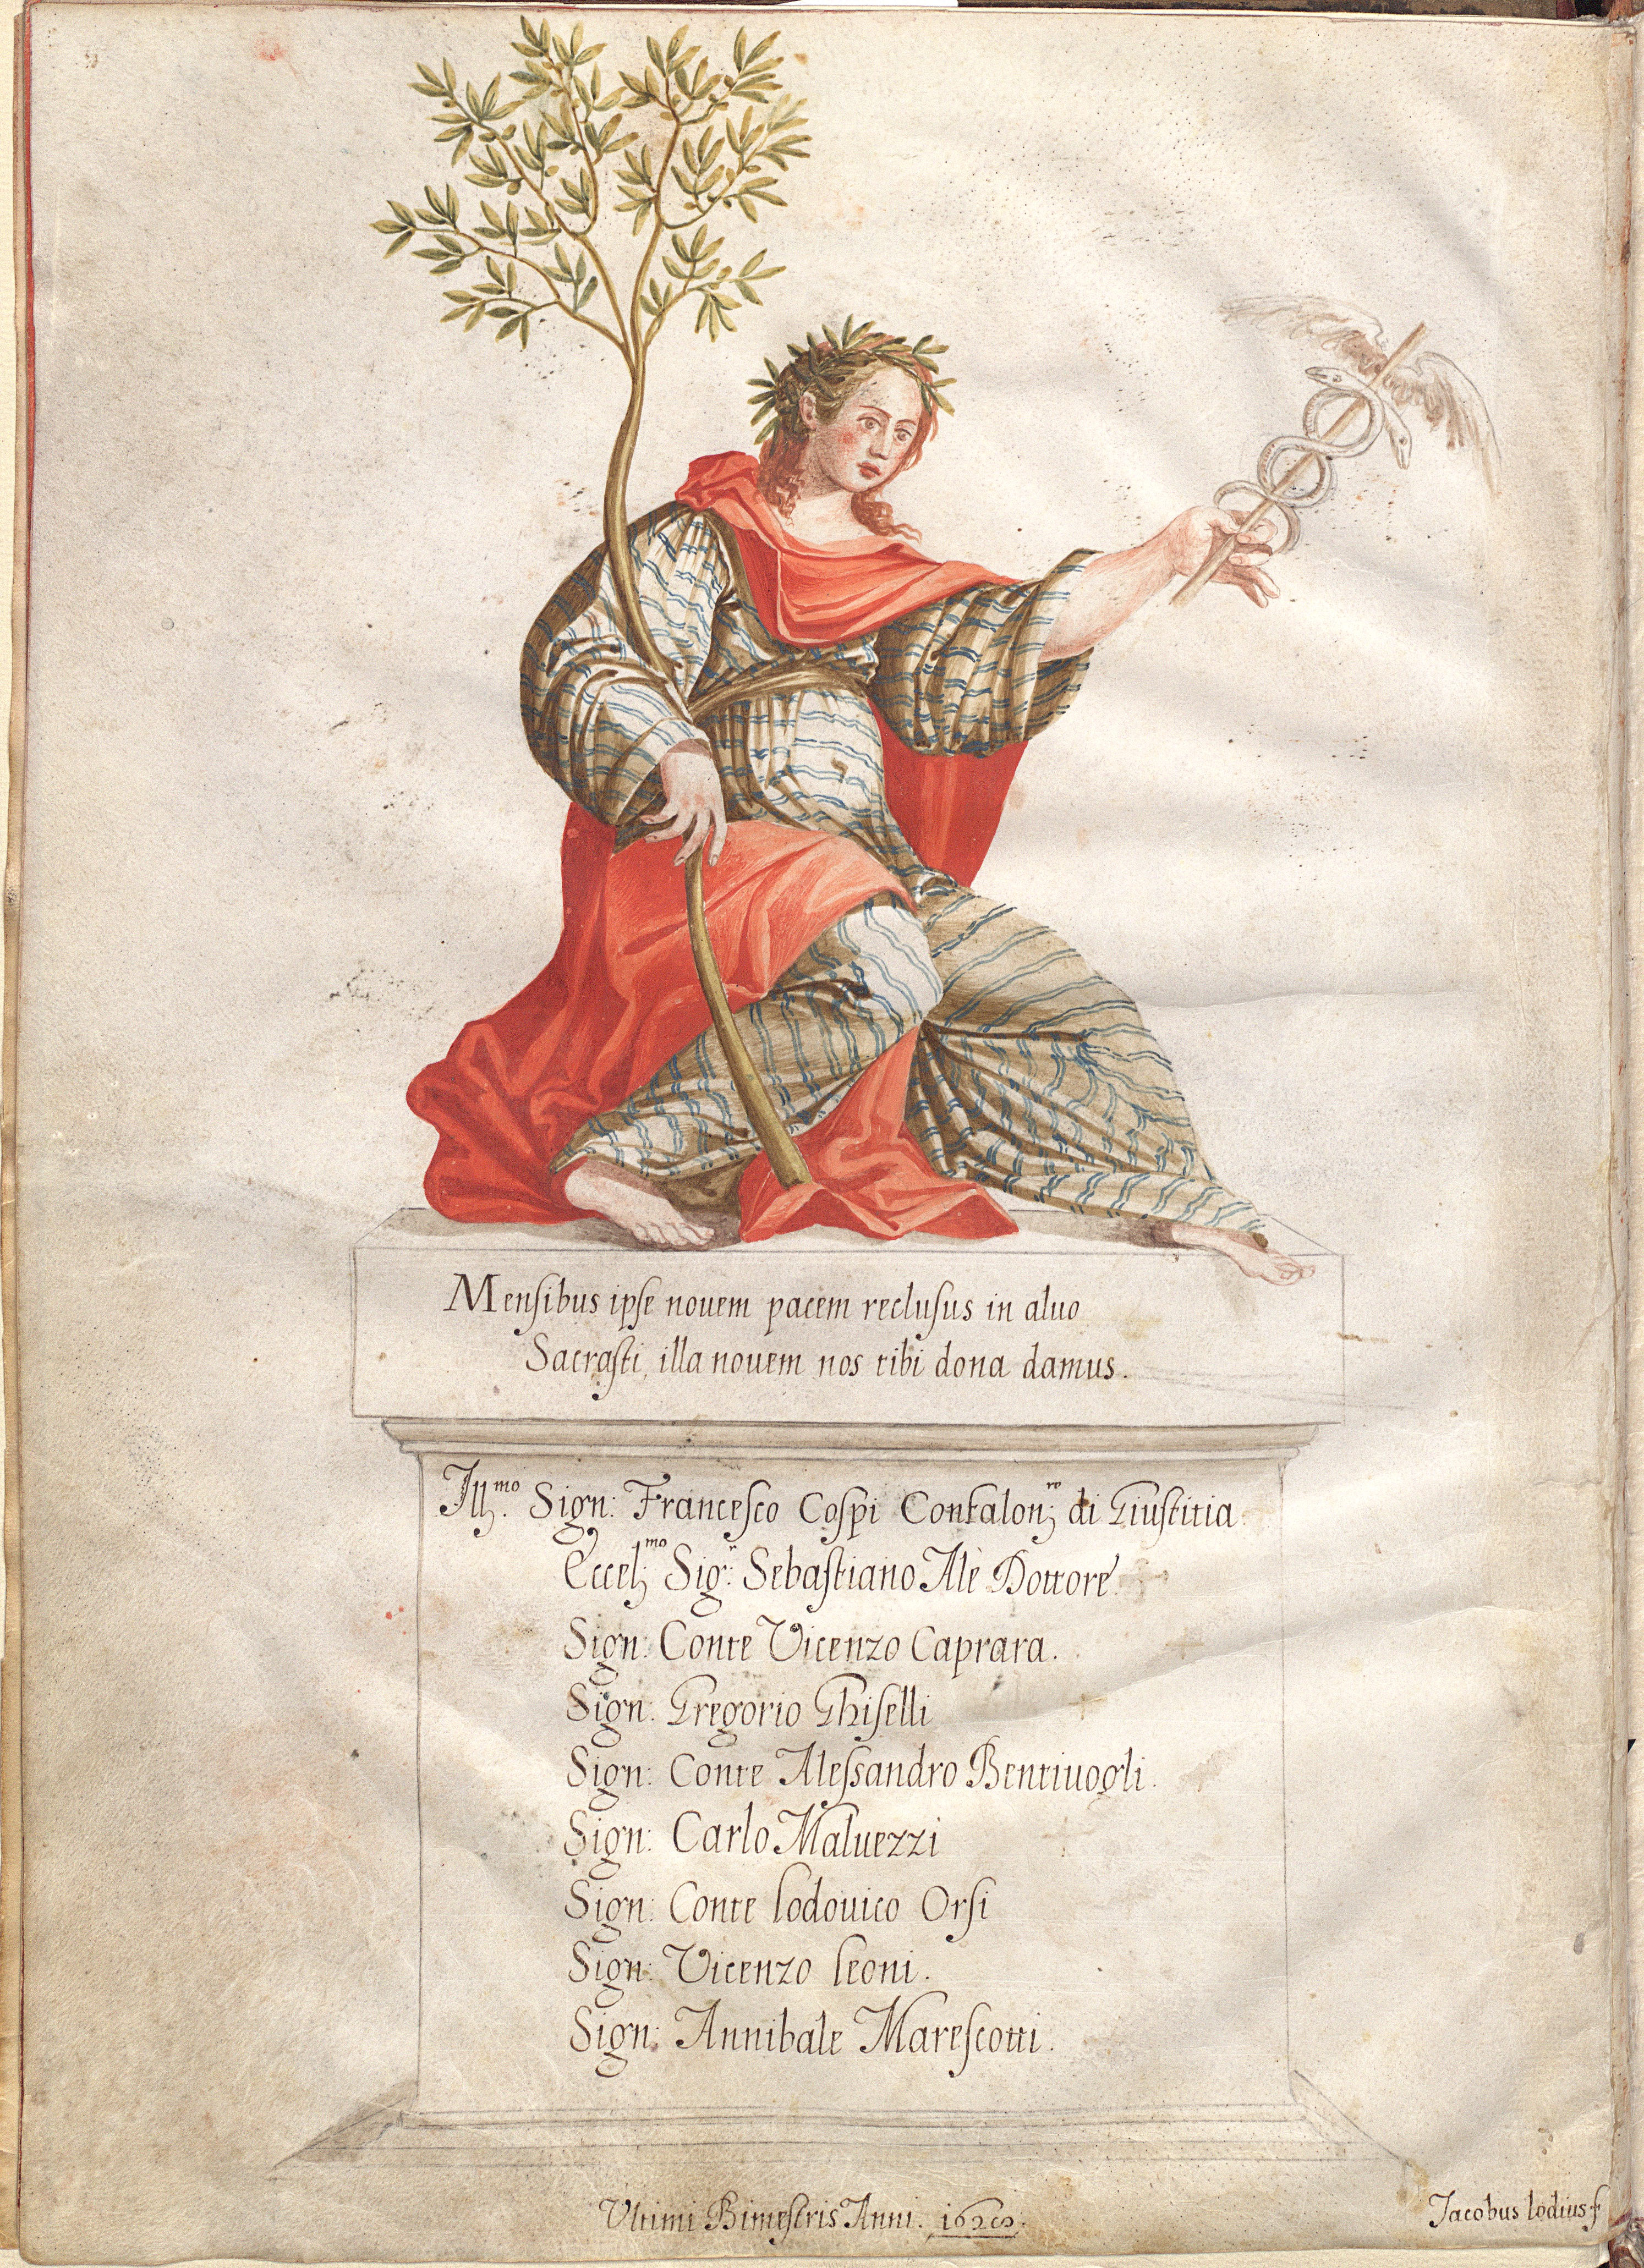 Mensibus ipse nouem pacem reclusus in aluo
Sacrasti, illa nouem nos tibi dona damus.
Ill.mo Sign: Francesco Cospi Confalon.re di Giustitia.
Eccel.mo Sig.r Sebastiano Alè Dottore
Sign: Conte Vicenzo Caprara.
Sign: Gregorio Ghiselli
Sign: Conte Alessandro Bentiuogli.
Sign: Carlo Maluezzi
Sign: Conte Lodouico Orsi
Sign: Vicenzo Leoni.
Sign: Annibale Marescotti.
Vltimi Bimestris Anni.
Jacobus Lodius f